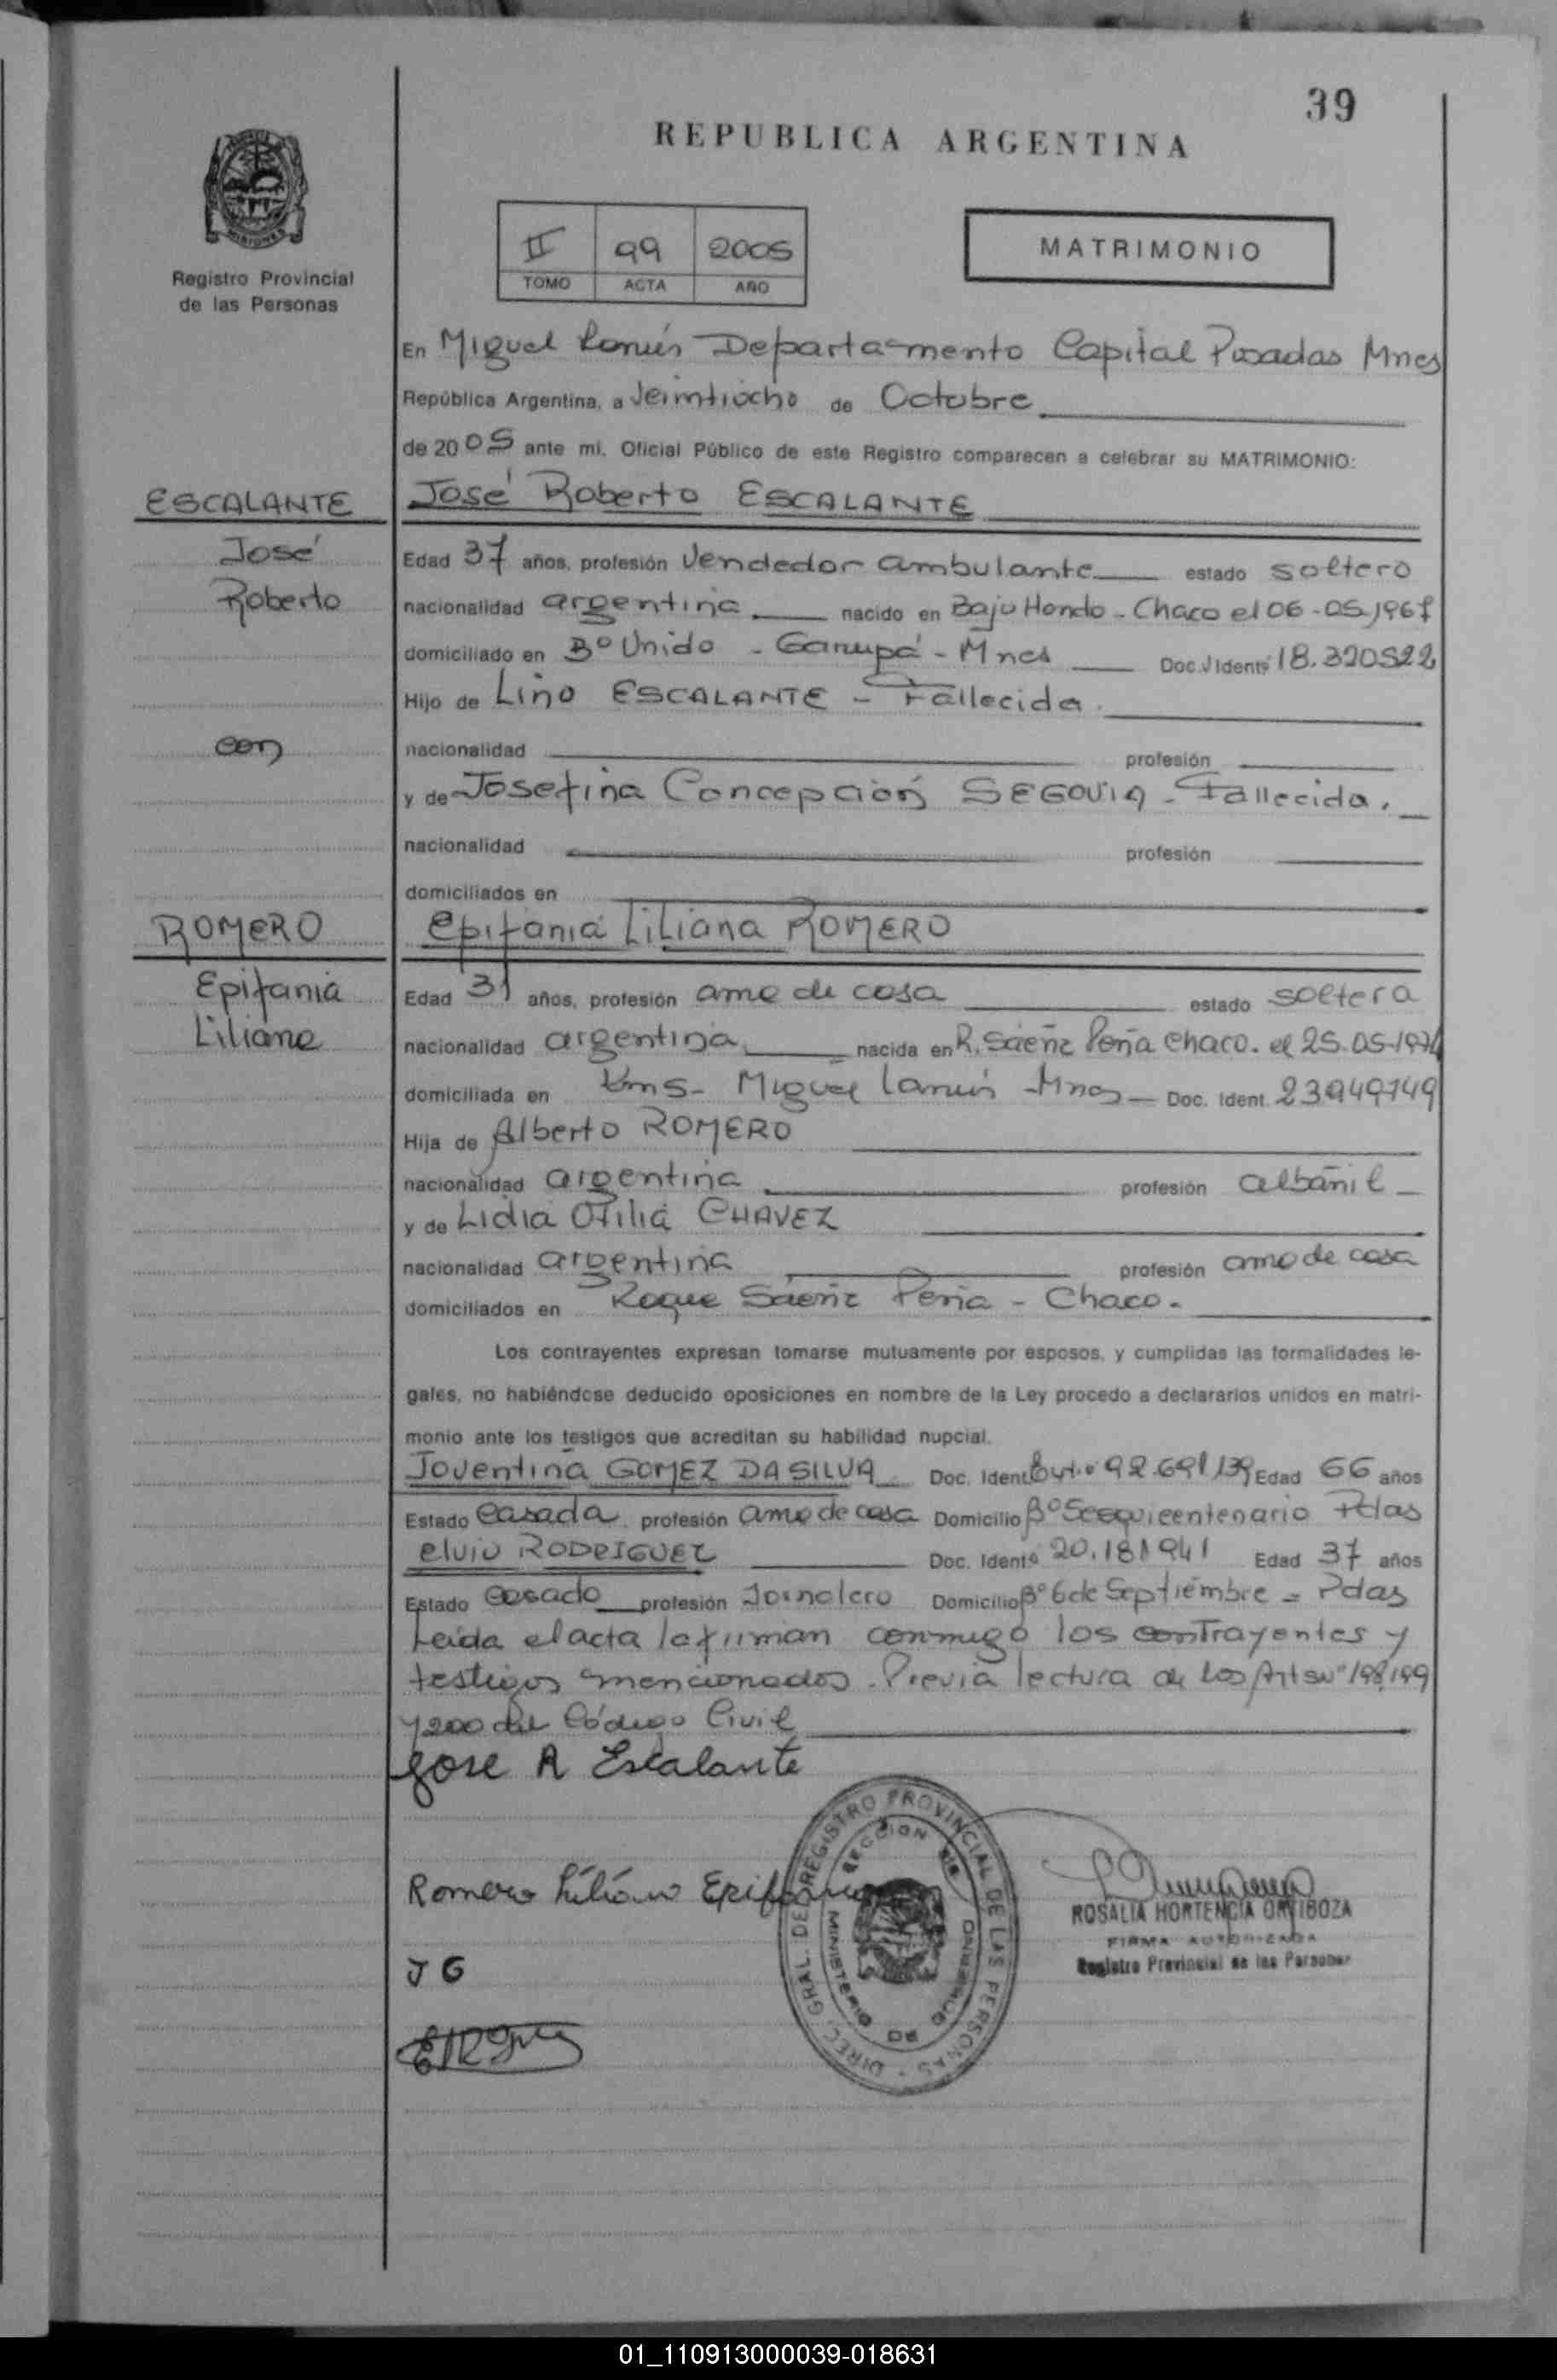 39
REPUBLICA ARGENTINA
MISIONES
Registro Provincial
de las Personas
II 99 2005
TOMO ACTA AÑO
MATRIMONIO
En Miguel Lanús Departamento Capital Posadas Mnes
República Argentina, a Veintiocho de Octubre
de 2005 ante mi, Oficial Público de este Registro comparecen a celebrar su MATRIMONIO:
ESCALANTE
José
Roberto
con
ROMERO
Epifania
Liliana
José Roberto ESCALANTE
Edad 37 años, profesión Vendedor ambulante estado soltero
nacionalidad argentina nacido en Bajo Hondo - Chaco el 06-05-1967
domiciliado en Bº Unido - Garupá - Mnes Doc. Ident. 18.320522
Hijo de Lino ESCALANTE - Fallecida.
nacionalidad profesión
y de Josefina Concepción SEGOVIA - Fallecida.
nacionalidad profesión
domiciliados en
Epifania Liliana ROMERO
Edad 31 años, profesión ama de casa estado soltera
nacionalidad argentina nacida en R. Sáenz Peña Chaco. el 25-05-1974
domiciliada en Miguel Lanús - Mnes Doc. Ident. 23949749
Hija de Alberto ROMERO
nacionalidad argentina profesión albañil
y de Lidia Otilia CHAVEZ
nacionalidad argentina profesión ama de casa
domiciliados en Roque Sáenz Peña - Chaco.
Los contrayentes expresan tomarse mutuamente por esposos, y cumplidas las formalidades le-
gales, no habiéndose deducido oposiciones en nombre de la Ley procedo a declararlos unidos en matri-
monio ante los testigos que acreditan su habilidad nupcial.
Joventina GOMEZ DA SILVA Doc. Ident. 92.691139 Edad 66 años
Estado Casada profesión ama de casa Domicilio Bº Sesquicentenario Pdas
Elvio RODRIGUEZ Doc. Ident. 20.181941 Edad 37 años
Estado Casado profesión Jornalero Domicilio Bº 6 de Septiembre = Pdas
Leída el acta la firman conmigo los contrayentes y
testigos mencionados. Previa lectura de los Arts nº 198, 199
y 200 del Código Civil
Jose R Escalante
Romero Liliana Epifania
J G
DIREC. GRAL. DEL REGISTRO PROVINCIAL DE LAS PERSONAS
MINISTERIO DE GOBIERNO
ROSALIA HORTENCIA ORTIBOZA
FIRMA AUTORIZADA
Registro Provincial de las Personas
01_110913000039-018631